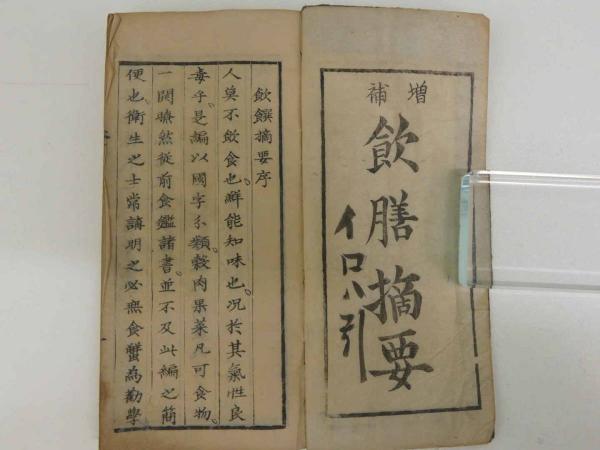 增補
飲膳摘要
イロハ引
飲饌摘要序
人莫不飲食也。鮮能知味也。况於其氣性良
毒乎。是編以國字分類。穀肉果菜凡可食物。
一閲瞭然。從前食鑑諸書。並不及此編之簡
便也。衛生之士常講明之必無食蟹為勸學